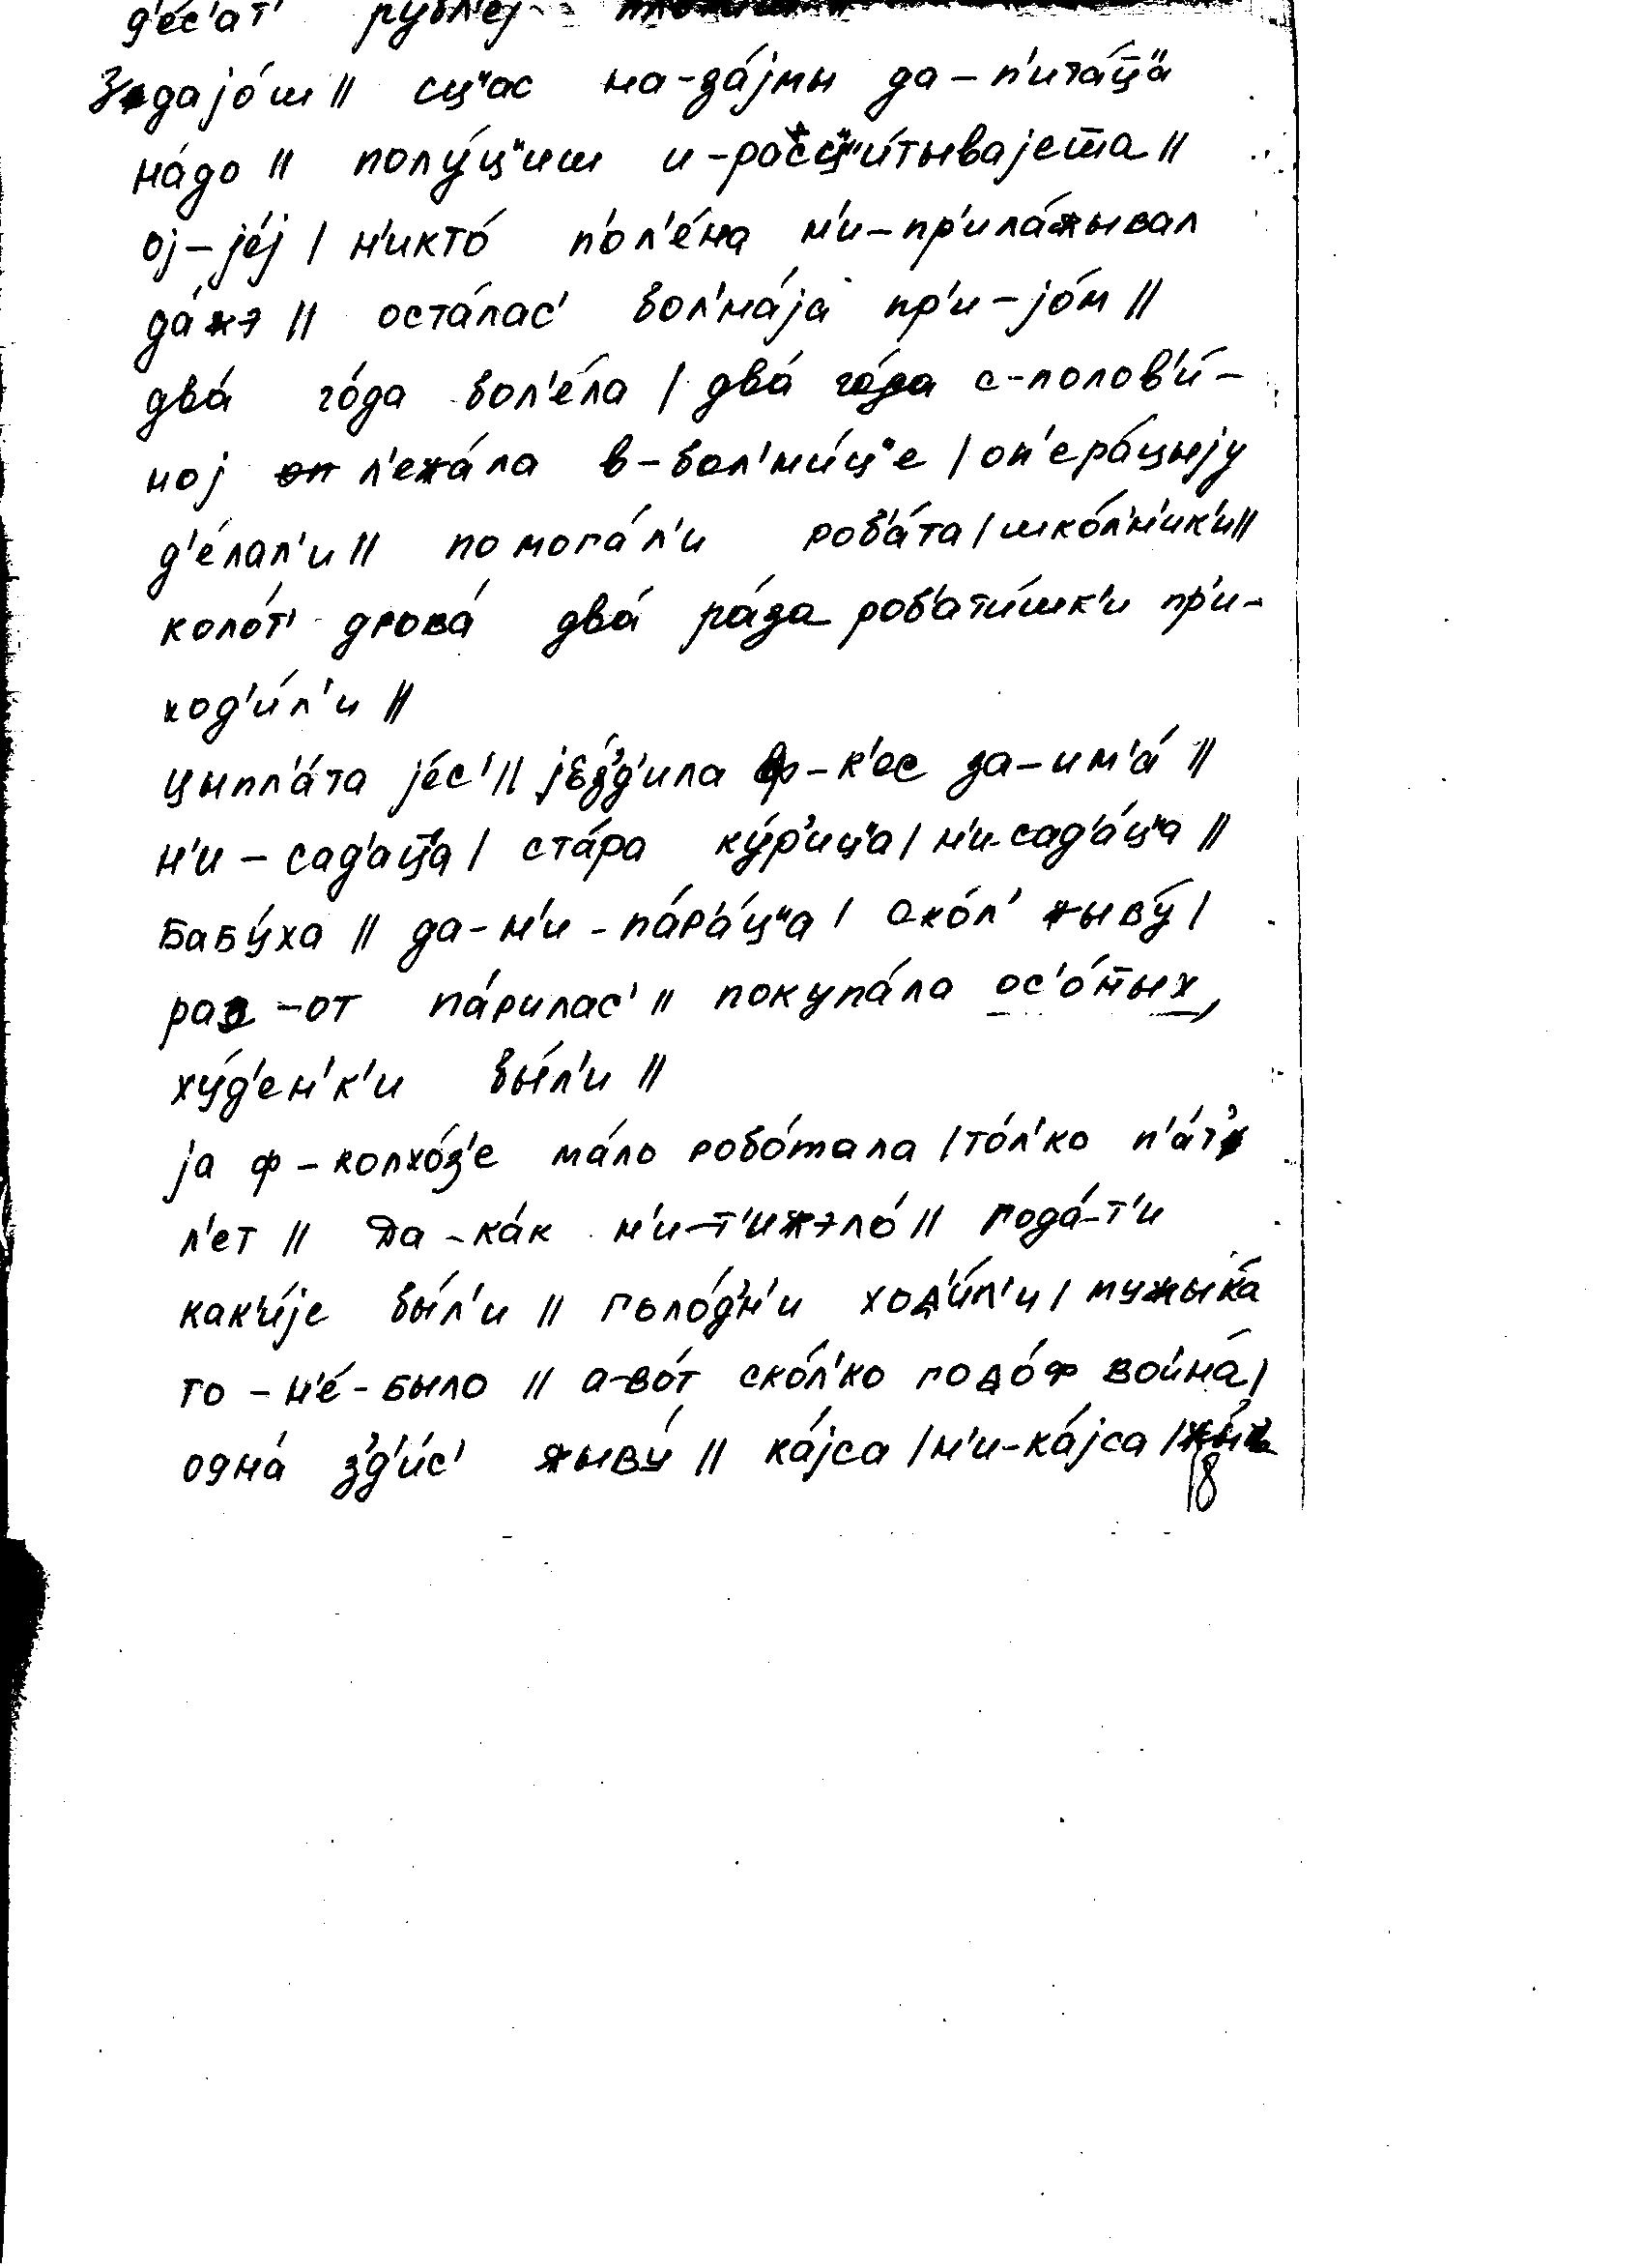 д'е́с'ат' рубл'еj
здаjо́ш || сц"ас на-да́jмы да-п'ита́ц"а
на́до || полу́ц"иш и-расц"и́тываjета ||
оj-jе́j | н'икто́ пол'е́на н'и-пр'ила́жывал
да́жэ || оста́лас' бол'на́jа пр'и-jо́м ||
два́ го́да бол'е́ла | два́ го́да с-полов'и́-
ноj л'ежа́ла в-бол'ни́ц"е | оп'ера́цыjу
д'е́лал'и || помога́л'и роб'а́та | шко́л'н'ик'и ||
коло́т' дрова́ два́ ра́за роб'ати́шк'и пр'и-
ход'и́л'и ||
цыпл'а́та jе́с' || jе́з'д'ила ф-к'ес за-им'а́ ||
н'и-сад'а́ц"а | ста́ра ку́р'иц"а | н'и-сад'а́ц"а ||
бабу́ха || да-н'и-па́р'а́ц"а | око́л' жыву́ |
раз-от па́рилас' || покупа́ла ос'о́тых,
ху́д'ен'к'и бы́л'и ||
jа ф-колхо́з'е ма́ло робо́тала | то́л'ко п'а́т'
л'ет || да-ка́к н'и-т'ижэло́ || года́-т'и
как'и́jе бы́л'и || голо́дн'и ход'и́л'и | мужыка́
то-н'е́-было || а-во́т ско́л'ко годо́ф война́ |
одна́ з'д'и́с' жыву́ || ка́jса | н'и-ка́jса |
18